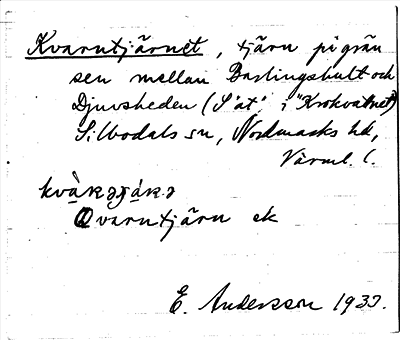 Kvarntjärnet, tjärn på grän
sen mellan Barlingshult och
Djuvsheden (S'at' i "Krokvattnet")
Silbodals sn, Nordmarks hd,
Värml. l.
Qvarntjärn ek
E. Andersson 1933.